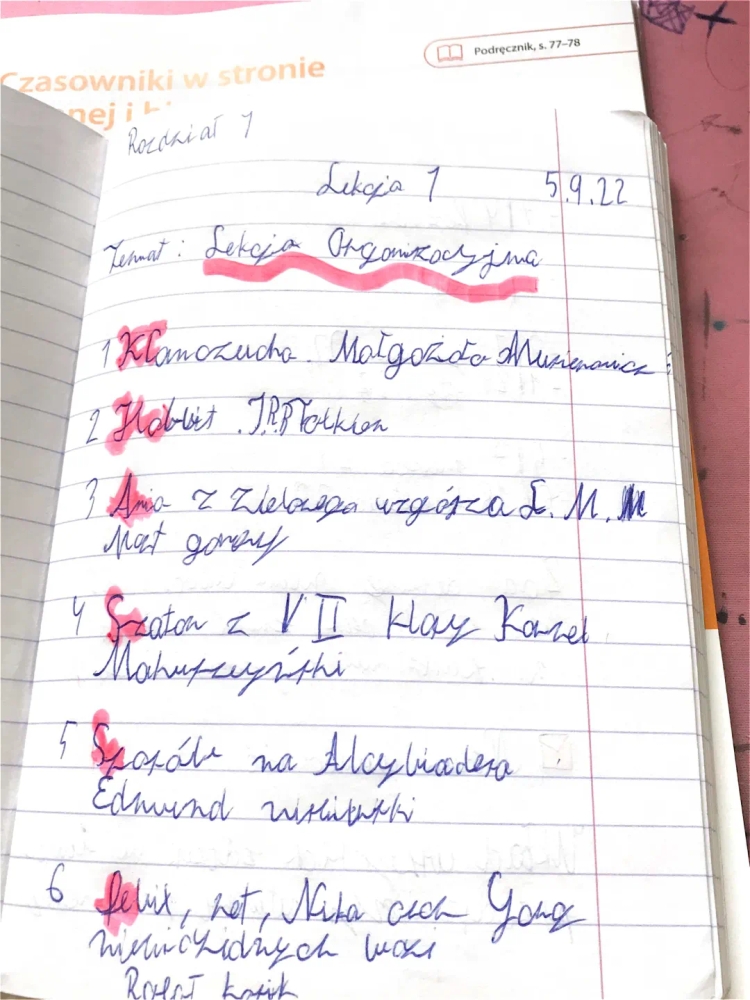 Podręcznik, s. 77–78
Czasowniki w stronie
Rozdział 1
Lekcja 1 5.9.22
Temat: Lekcja Organizacyjna
1 Kłamczucha. Małgożata Musierowicz
2 Hobbit. J.R.R Tolkien
3 Ania z Zielonego wzgórza L. M.
Mont gomery
4 Szaton z VII klasy Kornel
Makuszyński
5 Sposób na Alcybiadesa
Edmund
6 felix, net, Nika oraz Gang
niewidzialnych ludzi
Rafał kosik